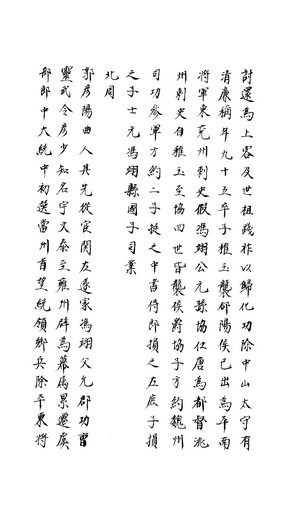 討還爲上客及世祖踐祚以歸化功除中山太守有
清廉稱年九十五卒子稚玉襲郃陽侯已出爲平南
將軍東兗州刺史假馮翊公元孫協仕唐爲都督洮
州刺史自稚玉至協四世皆襲侯爵協子方約魏州
司功參軍方約二子挺之中書侍郎損之左庶子損
之子士元馮翊縣國子司業
北周
郭彥陽曲人其先從宦關右遂家馮翊父允郡功曹
靈武令彥少知名宇文泰至雍州辟爲幕屬累遷虞
部郎中大統中初選當州首望統領鄉兵除平東將